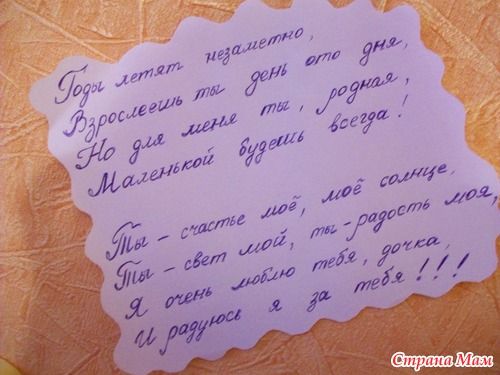 Годы летят незаметно,
Взрослеешь ты день ото дня,
Но для меня ты, родная,
Маленькой будешь всегда!
Ты – счастье моё, моё солнце,
Ты – свет мой, ты – радость моя,
Я очень люблю тебя, дочка,
И радуюсь я за тебя!!!
Страна Мам